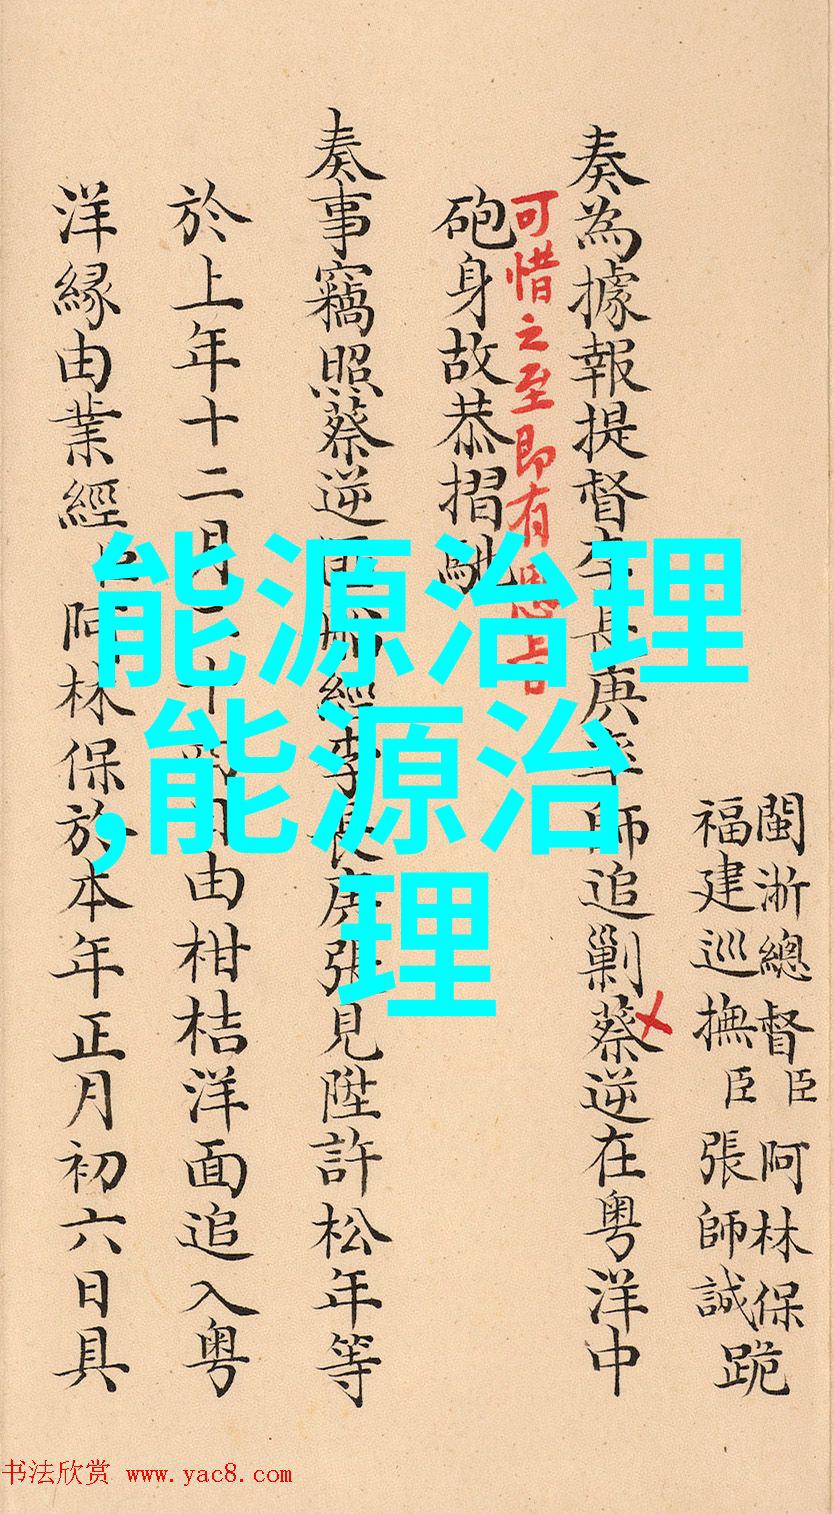 閩浙總督臣阿林保
福建巡撫臣張師誠
跪
奏為據報提督李長庚率師追剿蔡逆在粵洋中
可惜之至即有恩旨
砲身故恭摺馳
奏事竊照蔡逆匪船經李長庚張見陞許松年等
於上年十二月二十日由柑桔洋面追入粵
洋緣由業經臣阿林保於本年正月初六日具
能源治理
,能源治
理
书法欣赏 www.yac8.com